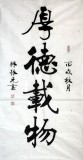 厚德載物
丙戌秋月